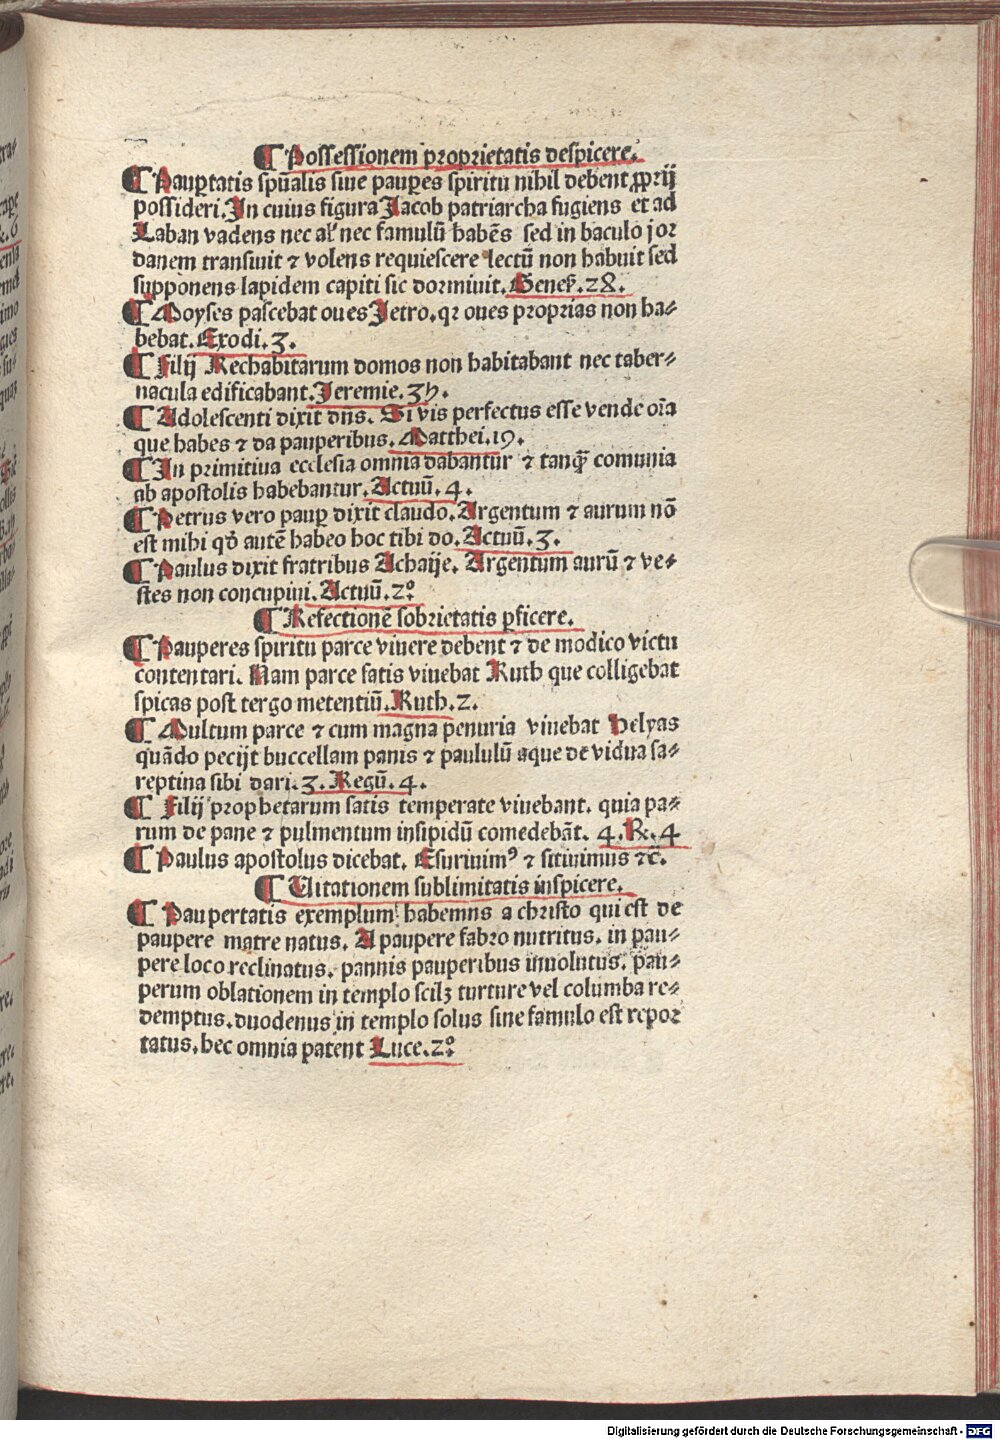 ¶ Possessionem proprietatis despicere.
¶ Paupertatis spũalis siue pauꝑes spiritu nihil debent ꝓprij
possideri. In cuius figura Jacob patriarcha fugiens et ad
Laban vadens nec al' nec famulũ habẽs sed in baculo jor
danem transiuit ⁊ volens requiescere lectũ non habuit sed
supponens lapidem capiti sic dormiuit. Genes̃. 28.
¶ Moyses pascebat oues Jetro. qr oues proprias non ha⸗
bebat. Exodi. 3.
¶ Filij Rechabitarum domos non habitabant nec taber⸗
nacula edificabant. Jeremie. 35.
¶ Adolescenti dixit dñs. Si vis perfectus esse vende oĩa
que habes ⁊ da pauperibus. Matthei. 19.
¶ In primitiua ecclesia omnia dabantur ⁊ tanq̃ comunia
ab apostolis habebantur. Actuũ. 4.
¶ Petrus vero pauꝑ dixit claudo. Argentum ⁊ aurum nõ
est mihi qð autẽ habeo hoc tibi do. Actuũ. 3.
¶ Paulus dixit fratribus Achaije. Argentum aurũ ⁊ ve⸗
stes non concupiui. Actuũ. 2º
¶ Refectionẽ sobrietatis ꝑficere.
¶ Pauperes spiritu parce viuere debent ⁊ de modico victu
contentari. Nam parce satis viuebat Ruth que colligebat
spicas post tergo metentiũ. Ruth. 2.
¶ Multum parce ⁊ cum magna penuria viuebat Helyas
quãdo pecijt buccellam panis ⁊ paululũ aque de vidua sa⸗
reptina sibi dari. 3. Regũ. 4.
¶ Filij prophetarum satis temperate viuebant. quia pa⸗
rum de pane ⁊ pulmentum insipidũ comedebãt. 4. R. 4
¶ Paulus apostolus dicebat. Esurinimꝰ ⁊ sitiuimus ⁊c̃.
¶ Uitationem sublimitatis inspicere.
¶ Paupertatis exemplum habemns a christo qui est de
paupere matre natus. A paupere fabro nutritus. in pau⸗
pere loco reclinatus. pannis pauperibus inuolutus. pau⸗
perum oblationem in templo scilꝫ turture vel columba re⸗
demptus. duodenus in templo solus sine famulo est repor
tatus. hec omnia patent Luce. 2º
Digitalisierung gefördert durch die Deutsche Forschungsgemeinschaft - DFG